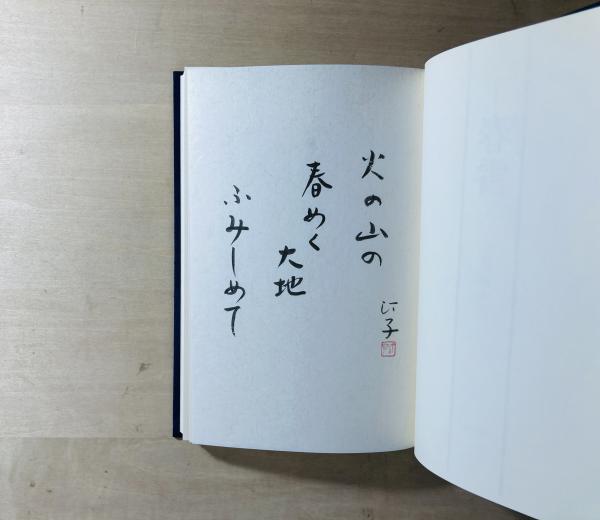 火の山の
春めく
大地
ふみしめて
汀子